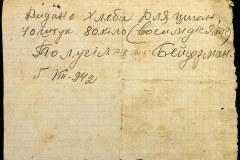 Видано хлеба для циган,
40 штук 80 кіло (восимдисят)
Получіл Бейдорман.
5 VIII-942